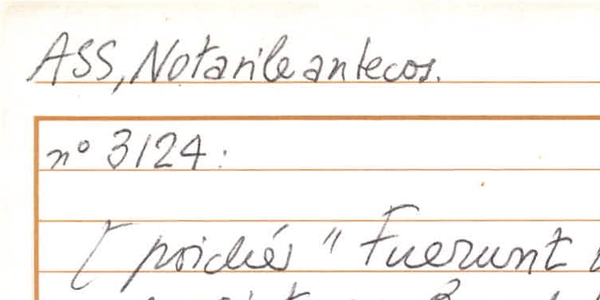 ASS, Notarile antecos.
n° 3124:
[ poiché " Fuerunt